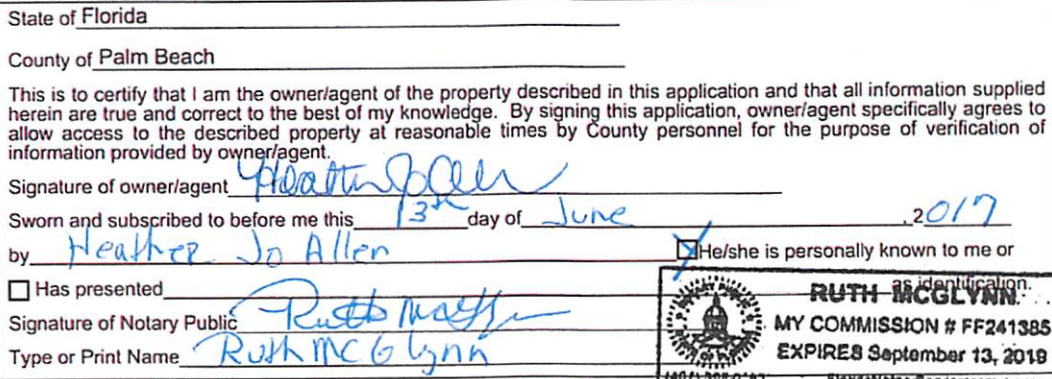 State of Florida
County of Palm Beach
This is to certify that I am the owner/agent of the property described in this application and that all information supplied
herein are true and correct to the best of my knowledge. By signing this application, owner/agent specifically agrees to
allow access to the described property at reasonable times by County personnel for the purpose of verification of
information provided by owner/agent.
Signature of owner/agent Heather Jo Allen
Sworn and subscribed to before me this 13th day of June , 2017
by Heather Jo Allen He/she is personally known to me or
Has presented as identification.
RUTH MCGLYNN
Signature of Notary Public Ruth McGlynn
MY COMMISSION # FF241385
Type or Print Name Ruth McGlynn
EXPIRES September 13, 2019